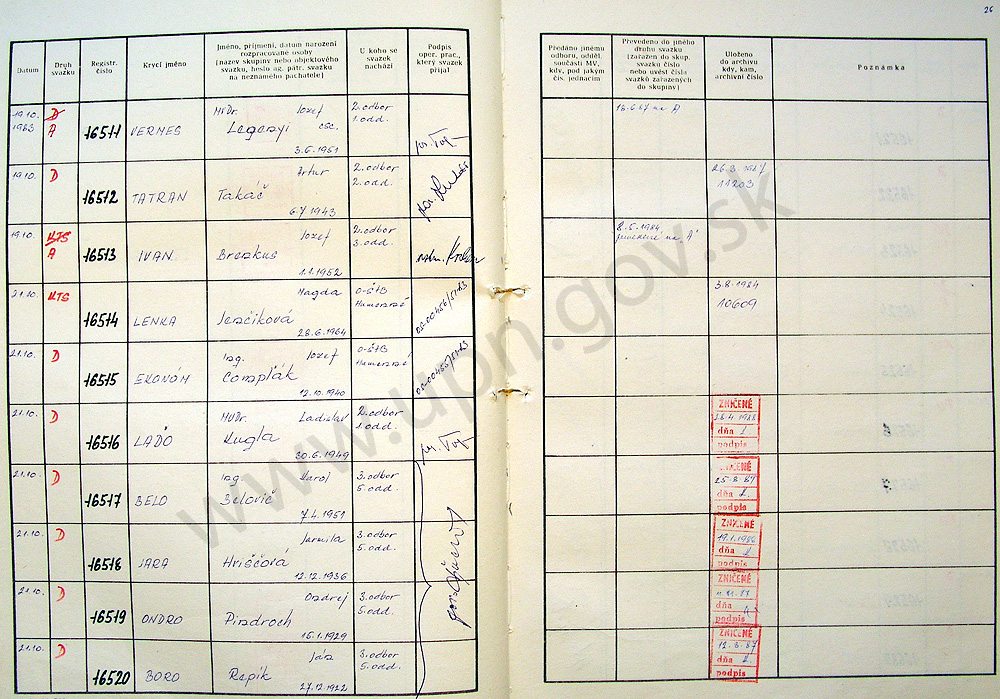 26
Datum
Druh svazku
Registr. číslo
Krycí jméno
Jméno, příjmení, datum narození
rozpracované osoby
(název skupiny nebo objektového
svazku, heslo ag. pátr. svazku
na neznámého pachatele)
U koho se
svazek
nachází
Podpis
oper. prac.,
který svazek
přijal
Předáno jinému
odboru, odděl.
součásti MV,
kdy, pod jakým
čís. jednacím
Převedeno do jiného
druhu svazku
(zařazen do skup.
svazku číslo
nebo uvést čísla
svazků zařazených
do skupiny)
Uloženo
do archivu
kdy, kam,
archivní číslo
Poznámka
19.10. 1983 D A 16511 VERMES
MUDr. Jozef
Legenyi CSc.
3.6.1951
2. odbor
1. odd.
19.10. D 16512 TATRAN
Artur
Takáč
6.7.1943
2. odbor
2. odd.
11203
19.10. KTS A 16513 IVAN
Jozef
Brezkus
1.1.1952
2. odbor
3. odd.
8.5.1984
21.10. KTS 16514 LENKA
Magda
Jenčíková
28.6.1964
O-ŠtB
Humenné
3.8.1984
10609
21.10. D 16515 EKONÓM
Ing. Jozef
Compľák
12.10.1940
O-ŠtB
Humenné
21.10. D 16516 LAĎO
MUDr. Ladislav
Kugla
30.6.1949
2. odbor
1. odd.
ZNIČENÉ
dňa
podpis
21.10. D 16517 BELO
Ing. Juraj
Belovič
7.4.1951
3. odbor
5. odd.
ZNIČENÉ
25.8.87
dňa
podpis
21.10. D 16518 JARA
Jarmila
Hriščová
12.12.1936
3. odbor
5. odd.
ZNIČENÉ
19.1.1986
dňa
podpis
21.10. D 16519 ONDRO
Ondrej
Pindroch
15.1.1929
3. odbor
5. odd.
ZNIČENÉ
dňa
podpis
21.10. D 16520 BORO
Ján
Repík
27.12.1922
3. odbor
5. odd.
ZNIČENÉ
12.8.87
dňa
podpis
www.upn.gov.sk